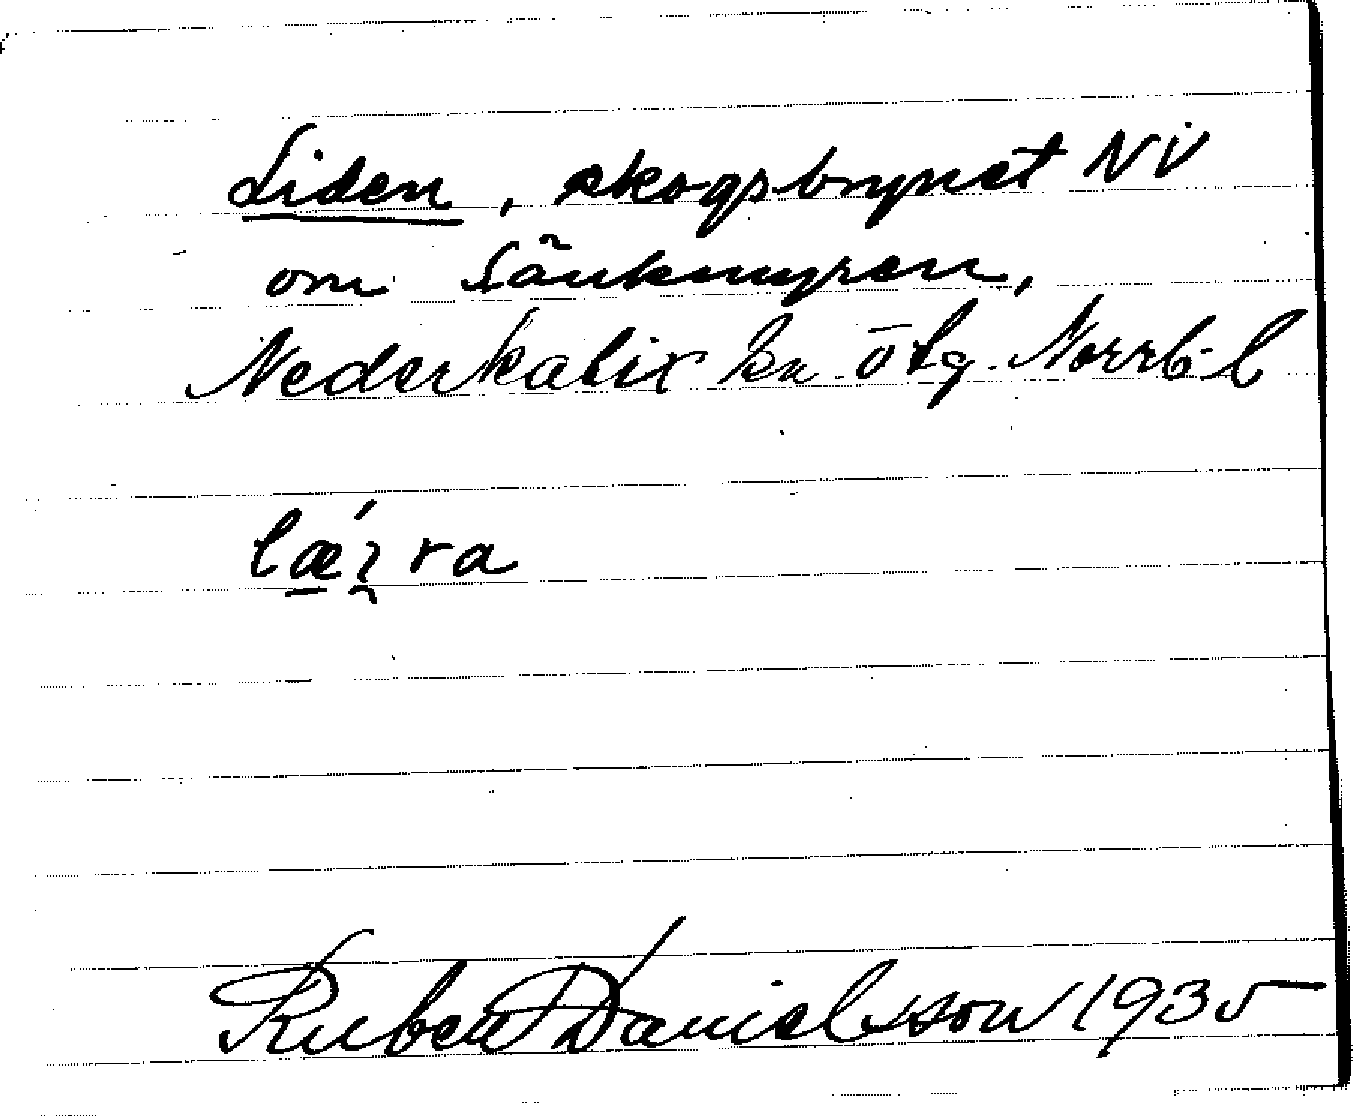 Liden, skogsbrynet NV
om Sänkmyren,
Nederkalix sn ötg. Norrb. l
ra
Ruben Danielsson 1935